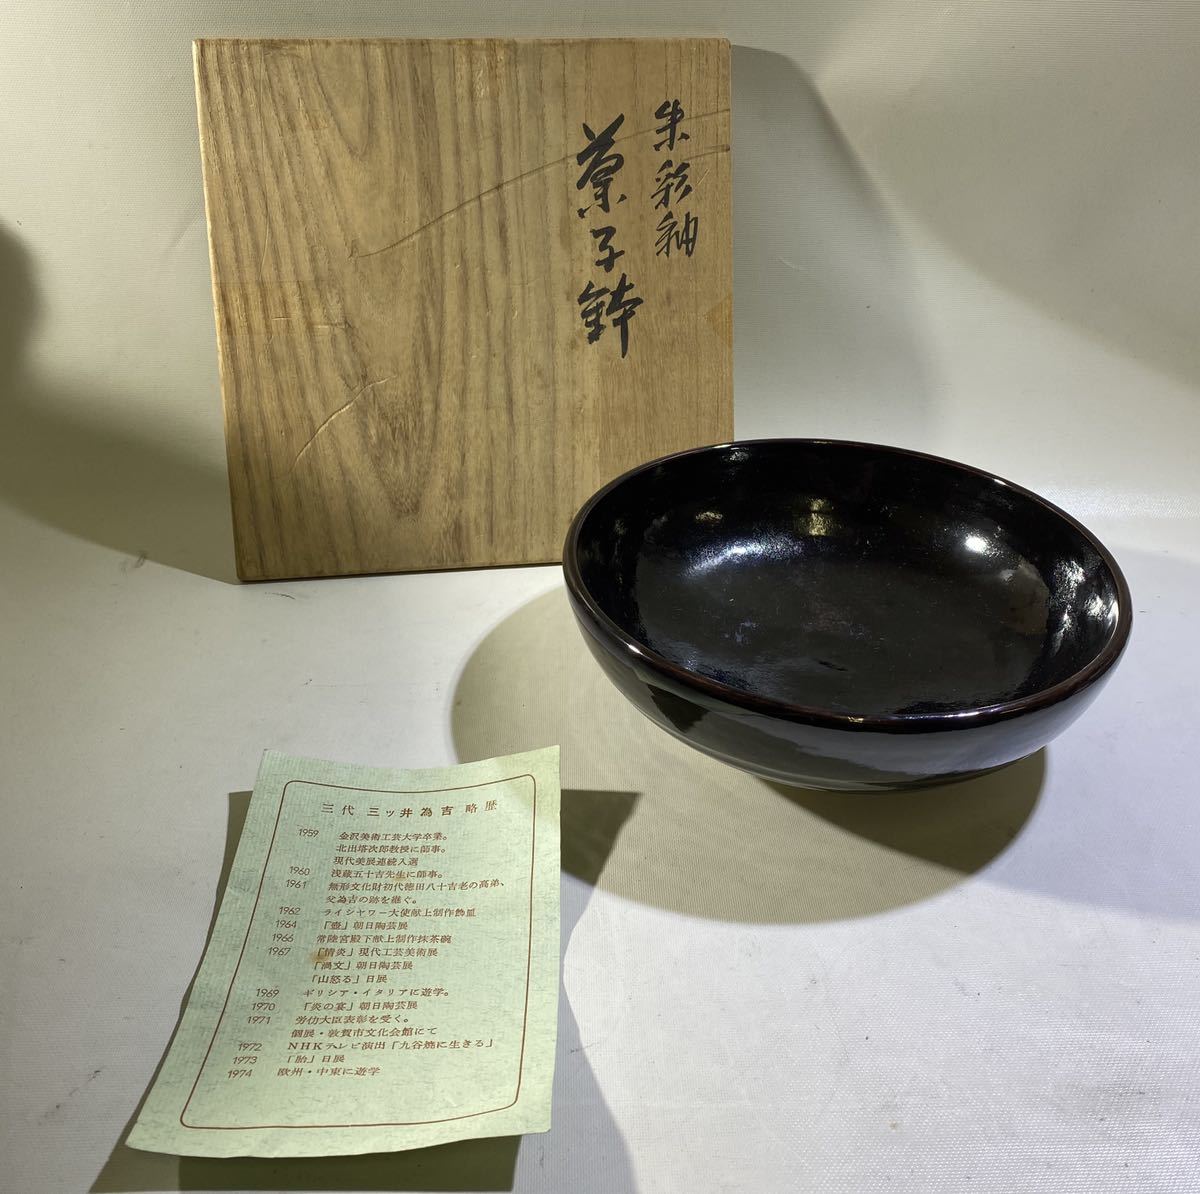 朱彩釉
菓子鉢
三代 三ッ井為吉 略歴
1959 金沢美術工芸大学卒業。
北出塔次郎教授に師事。
現代美展連続入選
1960 浅蔵五十吉先生に師事。
1961 無形文化財初代徳田八十吉老の高弟、
父為吉の跡を継ぐ。
1962 ライシャワー大使献上制作飾皿
1964 「壺」朝日陶芸展
1966 常陸宮殿下献上制作抹茶碗
1967 「情炎」現代工芸美術展
「渦文」朝日陶芸展
「山怒る」日展
1969 ギリシア・イタリアに遊学。
1970 「炎の宴」朝日陶芸展
1971 労仂大臣表彰を受く。
個展・敦賀市文化会館にて
1972 NHKテレビ演出「九谷焼に生きる」
1973 「胎」日展
1974 欧州・中東に遊学